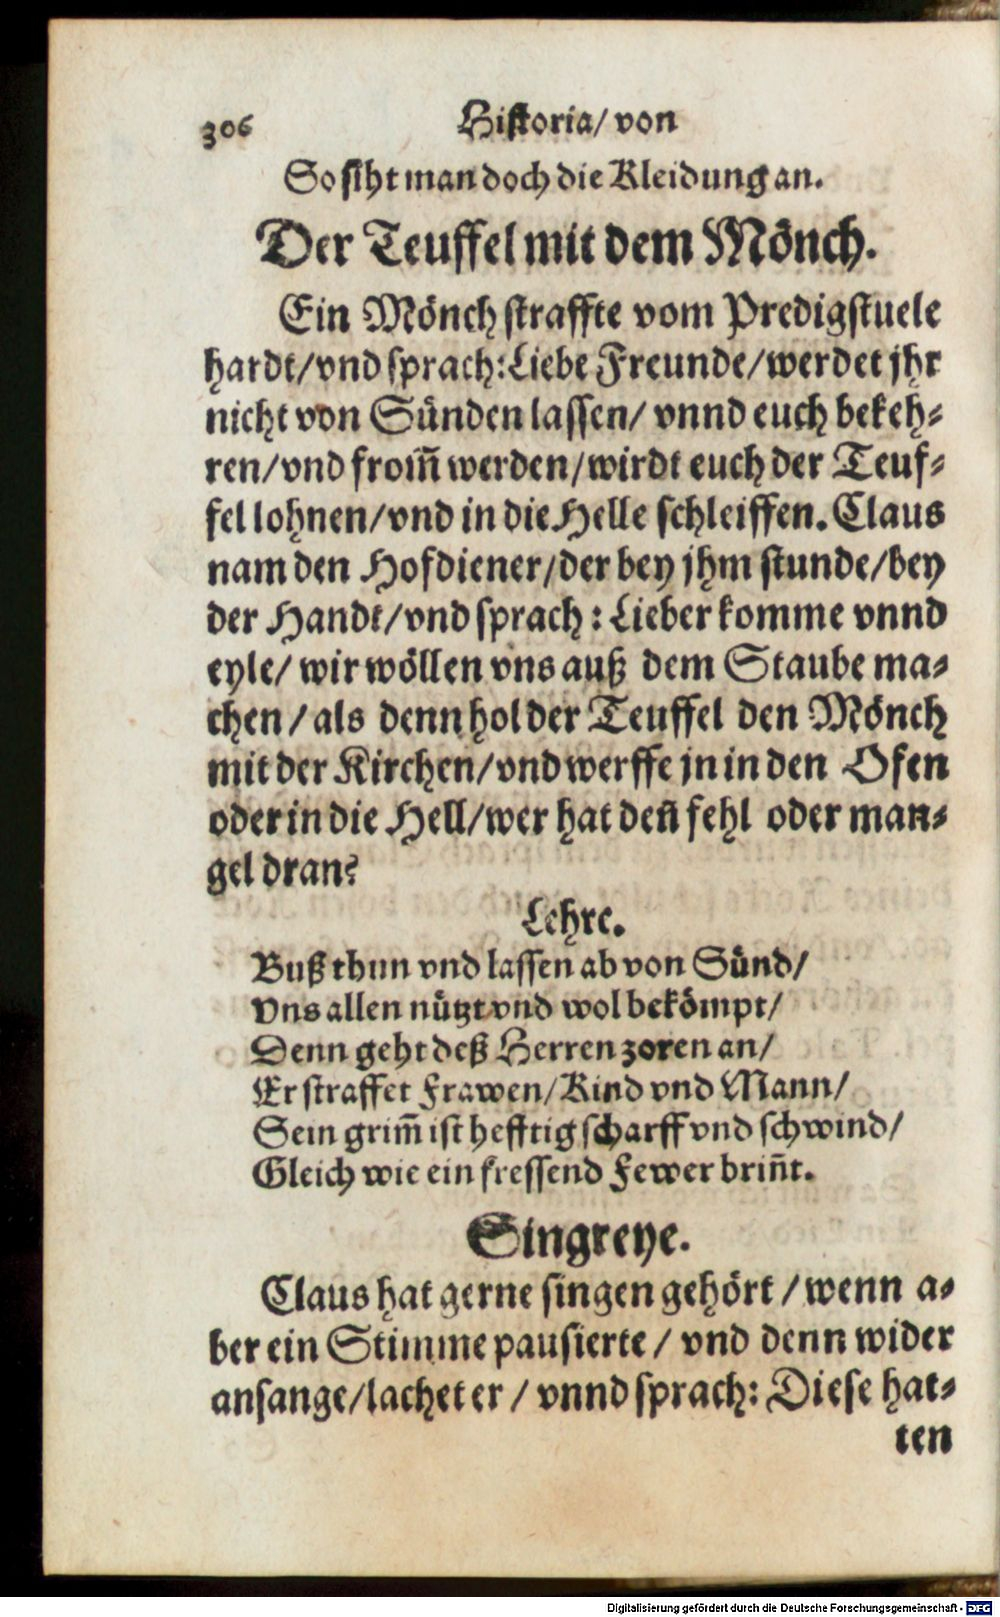 306 Historia/ von
So siht man doch die Kleidung an.
Der Teuffel mit dem Mönch.
Ein Mönch straffte vom Predigstuele
hardt/vnd sprach: Liebe Freunde/werdet jhr
nicht von Sünden lassen/ vnnd euch bekeh-
ren/vnd from̃ werden/wirdt euch der Teuf-
fel lohnen/vnd in die Helle schleiffen. Claus
nam den Hofdiener/der bey jhm stunde/bey
der Handt/vnd sprach: Lieber komme vnnd
eyle/ wir wöllen vns auß dem Staube ma-
chen/als denn hol der Teuffel den Mönch
mit der Kirchen/vnd werffe jn in den Ofen
oder in die Hell/wer hat deñ fehl oder man-
gel dran?
Lehre.
Buß thun vnd lassen ab von Sünd/
Vns allen nützt vnd wol bekömpt/
Denn geht deß Herren zoren an/
Er straffet Frawen/Kind vnd Mann/
Sein grim̃ ist hefftig scharff vnd schwind/
Gleich wie ein fressend Fewer briñt.
Singreye.
Claus hat gerne singen gehört/wenn a-
ber ein Stimme pausierte/ vnd denn wider
anfange/lachet er/ vnnd sprach: Diese hat-
ten
Digitalisierung gefördert durch die Deutsche Forschungsgemeinschaft - DFG